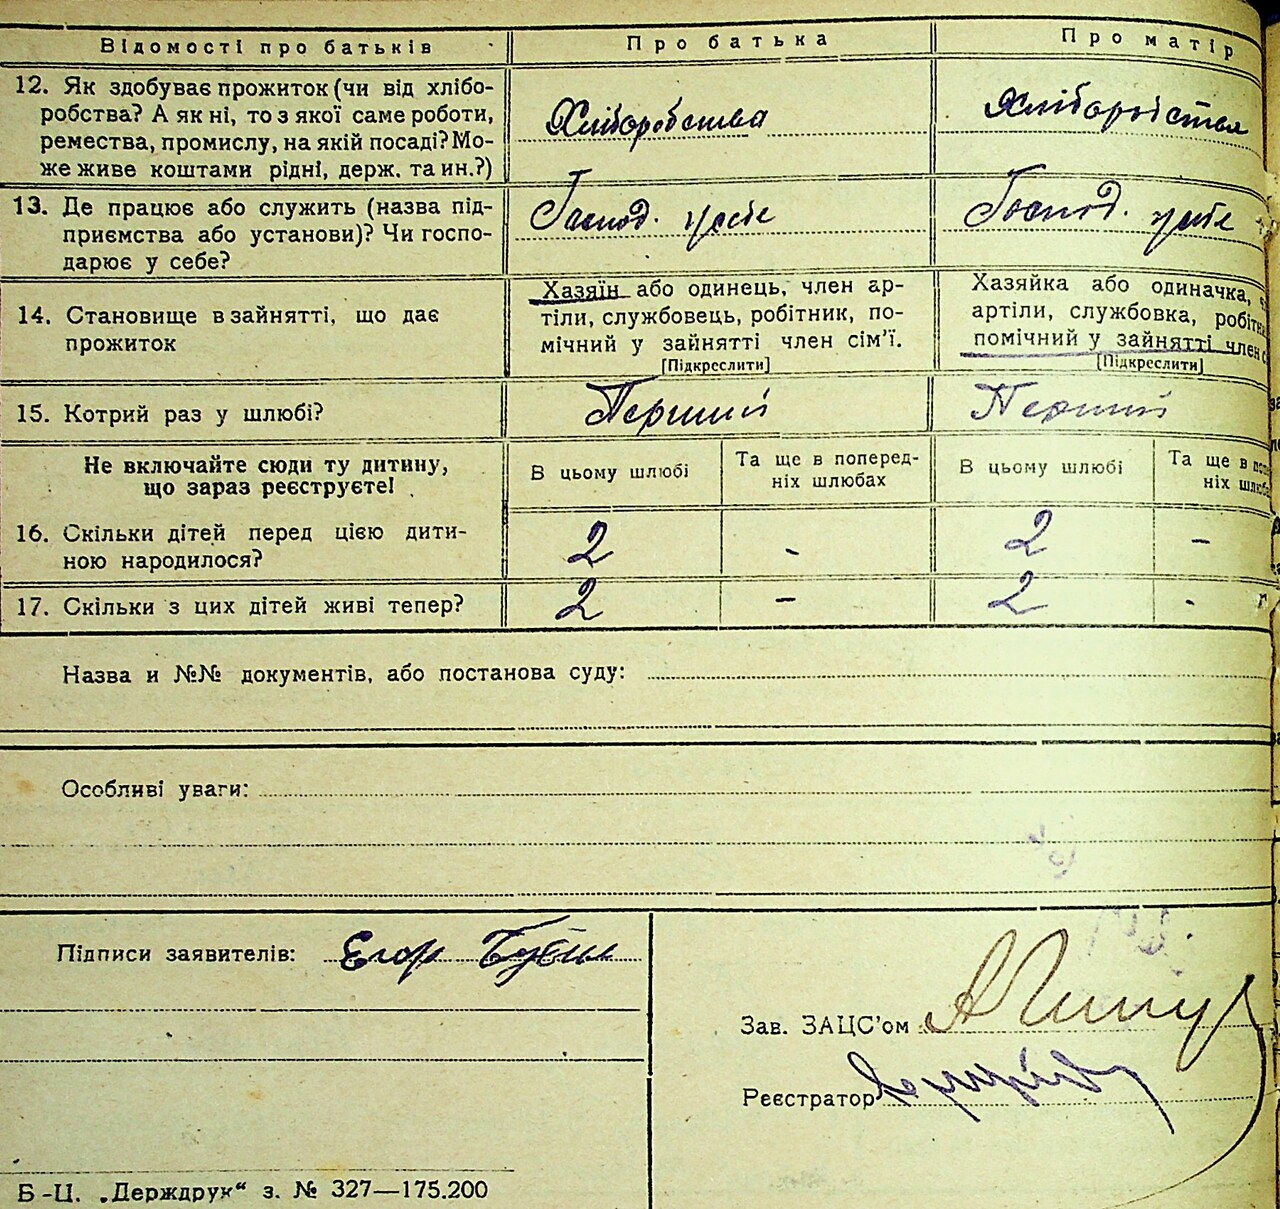 Відомості про батьків Про батька Про матір
12. Як здобуває прожиток (чи від хлібо-
робства? А як ні, то з якої саме роботи,
ремества, промислу, на якій посаді? Мо-
же живе коштами рідні, держ. та ин.?)
Хліборобства Хліборобства
13. Де працює або служить (назва під-
приємства або установи)? Чи госпо-
дарює у себе?
Господ. у себе Господ. у себе
14. Становище в зайнятті, що дає
прожиток
Хазяїн або одинець, член ар-
тіли, службовець, робітник, по-
мічний у зайнятті член сім'ї.
[Підкреслити]
Хазяйка або одиначка,
артіли, службовка,
помічний у зайнятті член
[Підкреслити]
15. Котрий раз у шлюбі? Перший Перший
Не включайте сюди ту дитину,
що зараз реєструєте!
В цьому шлюбі
Та ще в поперед-
ніх шлюбах
В цьому шлюбі
Та ще в
ніх
16. Скільки дітей перед цією дити-
ною народилося?
2 - 2 -
17. Скільки з цих дітей живі тепер? 2 - 2 -
Назва и №№ документів, або постанова суду:
Особливі уваги:
Підписи заявителів: Егор
Зав. ЗАЦС'ом
Реєстратор
Б-Ц. „Держдрук“ з. № 327—175.200